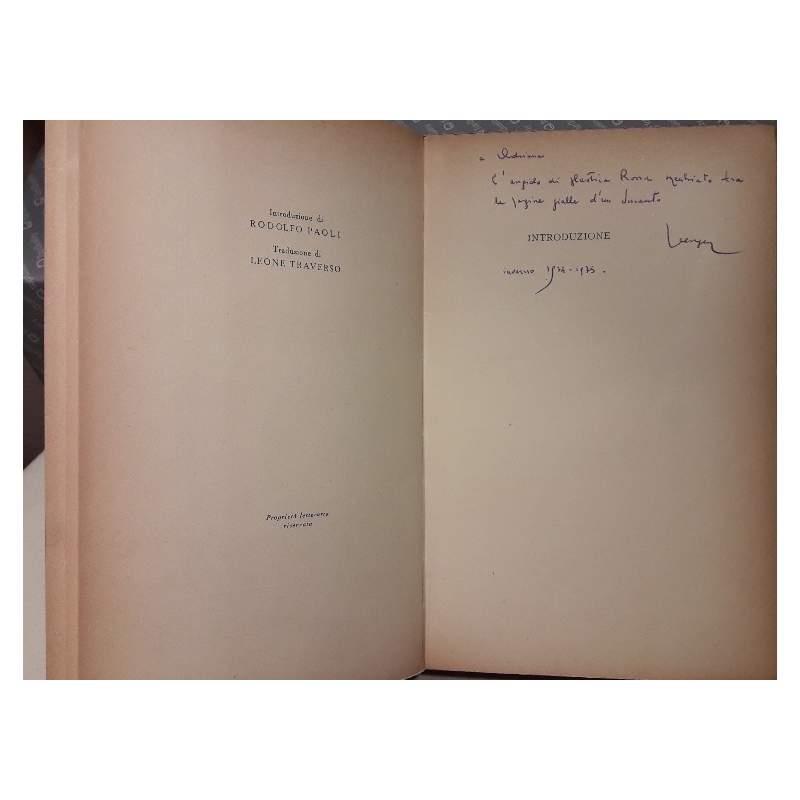 Introduzione di
RODOLFO PAOLI
Traduzione di
LEONE TRAVERSO
Proprietà letteraria
riservata
a Adriana
L' di plastica Rossa tra
le pagine gialle d'un
INTRODUZIONE
inverno 1974-1975.